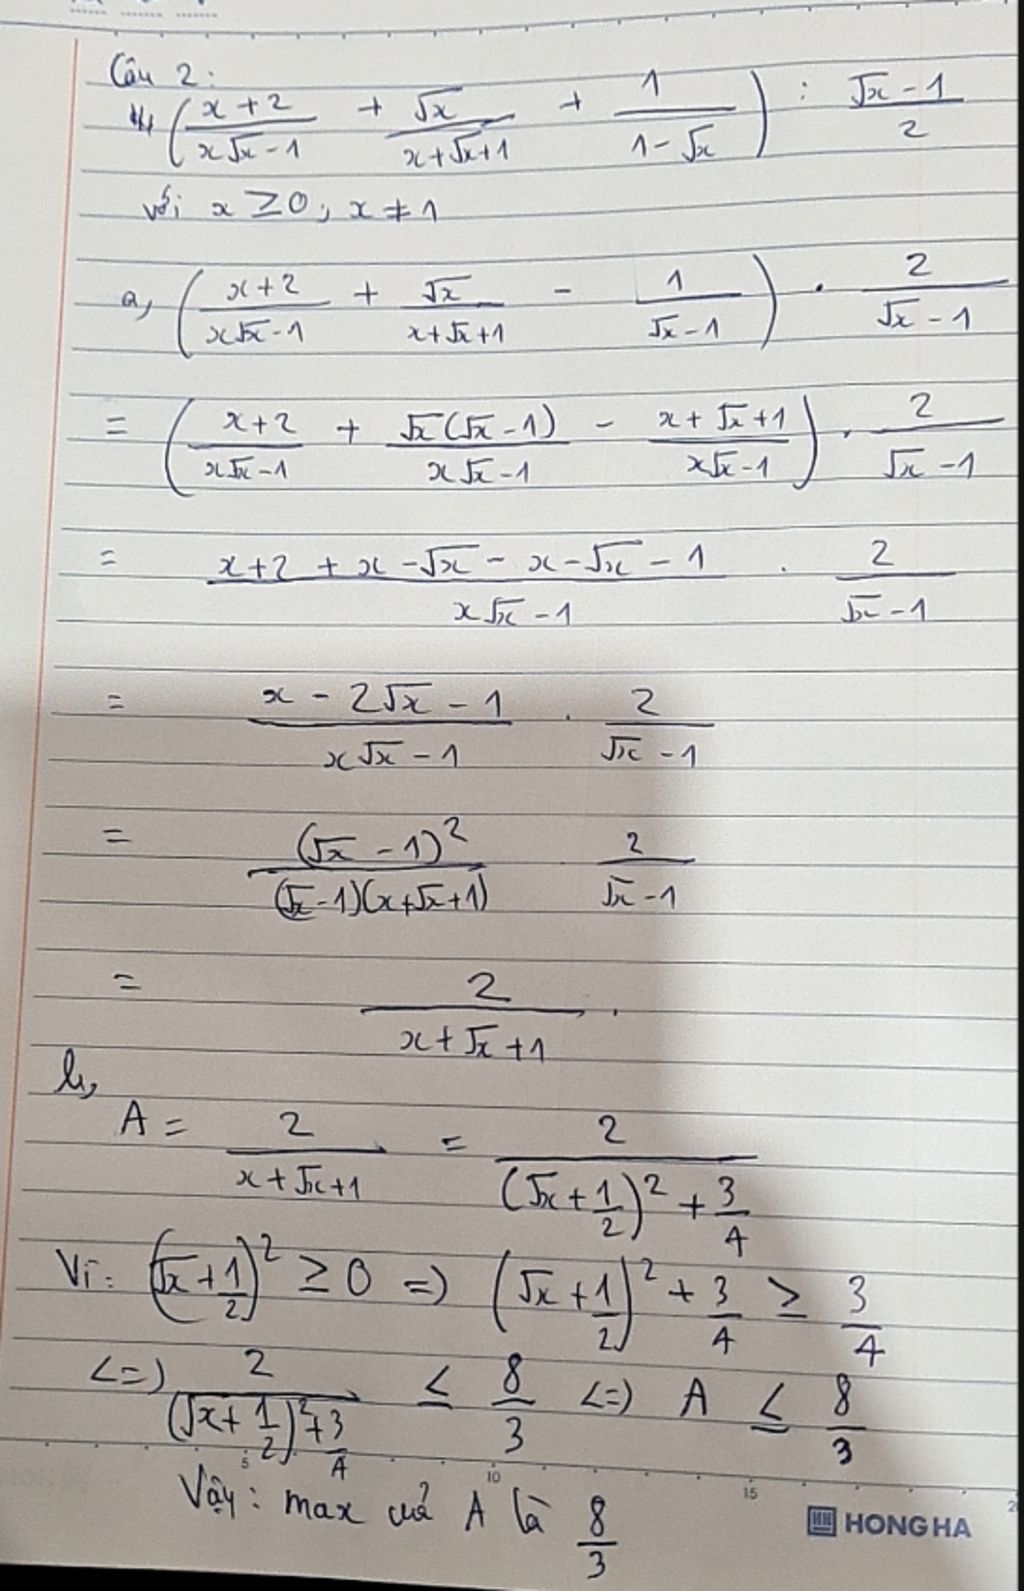 Câu 2:
1, (x+2/(x√x-1) + √x/(x+√x+1) + 1/(1-√x)) : (√x-1)/2
với x ≥ 0; x ≠ 1
a, (x+2/(x√x-1) + √x/(x+√x+1) - 1/(√x-1)) . 2/(√x-1)
= (x+2/(x√x-1) + √x(√x-1)/(x√x-1) - (x+√x+1)/(x√x-1)) . 2/(√x-1)
= (x+2+x-√x-x-√x-1)/(x√x-1) . 2/(√x-1)
= (x-2√x-1)/(x√x-1) . 2/(√x-1)
= (√x-1)²/((√x-1)(x+√x+1)) . 2/(√x-1)
= 2/(x+√x+1) .
b,
A = 2/(x+√x+1) = 2/((√x+1/2)²+3/4)
Vì: (√x+1/2)² ≥ 0 => (√x+1/2)² + 3/4 ≥ 3/4
<=> 2/((√x+1/2)²+3/4) ≤ 8/3 <=> A ≤ 8/3
Vậy: max củả A là 8/3
5 10 15
HONG HA